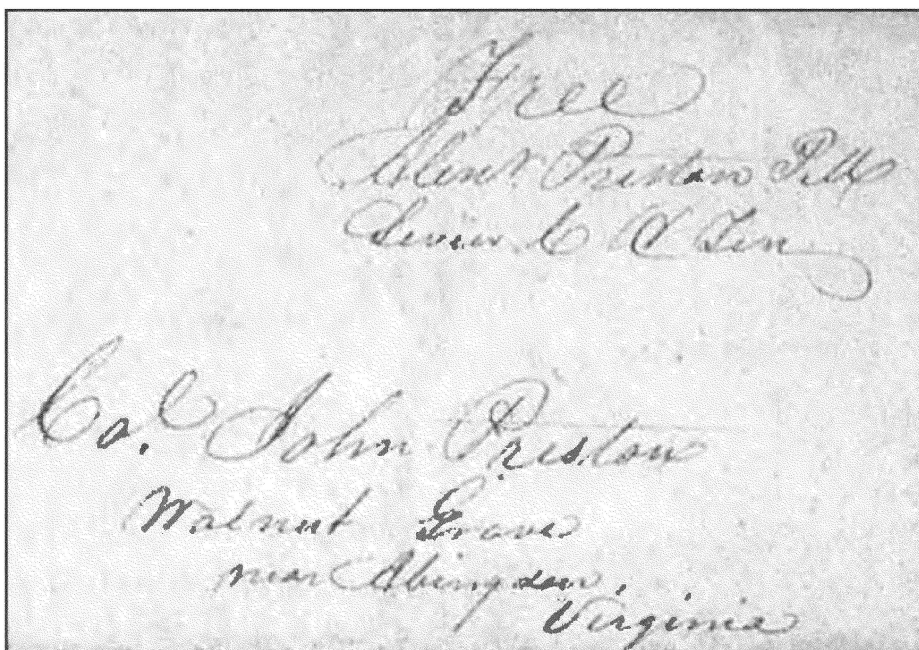 Free
Alexr. Preston
Sevier C Ten
Col John Preston
Walnut Grove
near Abingdon,
Virginia